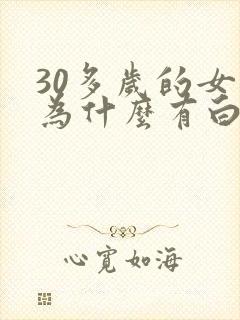 30多歲的女
為什麼有白
心寬如海